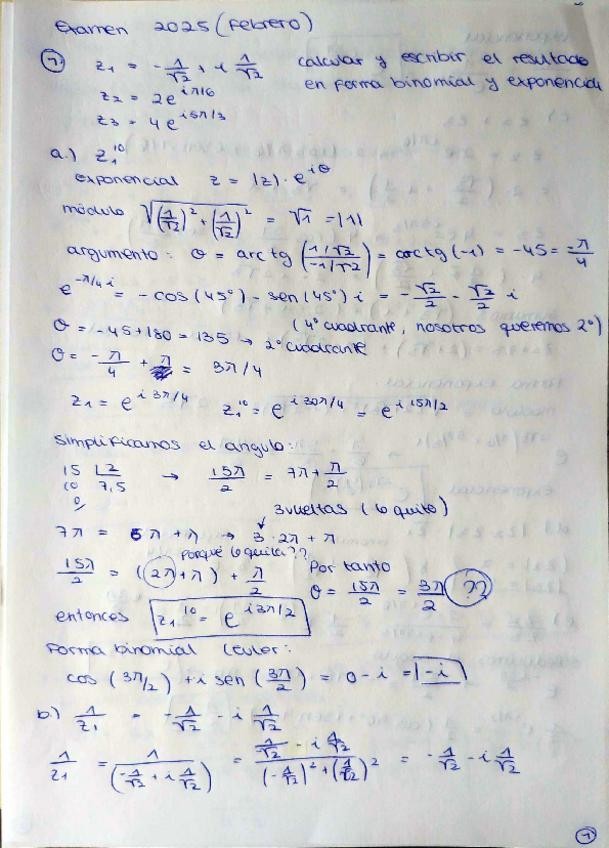 Examen 2025 (Febrero)
1. z1 = -1/√2 + i 1/√2 calcular y escribir el resultado
z2 = 2e^iπ/6 en forma binomial y exponencial
z3 = 4e^i5π/3
a.) z1^10
exponencial z = |z|·e^iθ
módulo √((1/√2)^2 + (1/√2)^2) = √1 = |1|
argumento: θ = arctg (1/√2 / -1/√2) = arctg (-1) = -45 = -π/4
e^-π/4 i = -cos (45°) - sen (45°) i = -√2/2 - √2/2 i
(4º cuadrante, nosotros queremos 2º)
θ = -45 + 180 = 135 → 2º cuadrante
θ = -π/4 + π = 3π/4
z1 = e^i3π/4 z1^10 = e^i30π/4 = e^i15π/2
Simplificamos el angulo:
15 | 2 → 15π/2 = 7π + π/2
10 7,5
0
3 vueltas (lo quito)
7π = 6π + π → 3·2π + π
porqué lo quita??
15π/2 = (2π + π) + π/2 Por tanto θ = 15π/2 = 3π/2 ??
entonces z1^10 = e^i3π/2
Forma binomial Euler:
cos (3π/2) + i sen (3π/2) = 0 - i = -i
b.) 1/z1 = -1/√2 - i 1/√2
1/z1 = 1/(-1/√2 + i 1/√2) = (1/√2 - i 1/√2)/((-1/√2)^2 + (1/√2)^2) = -1/√2 - i 1/√2
1